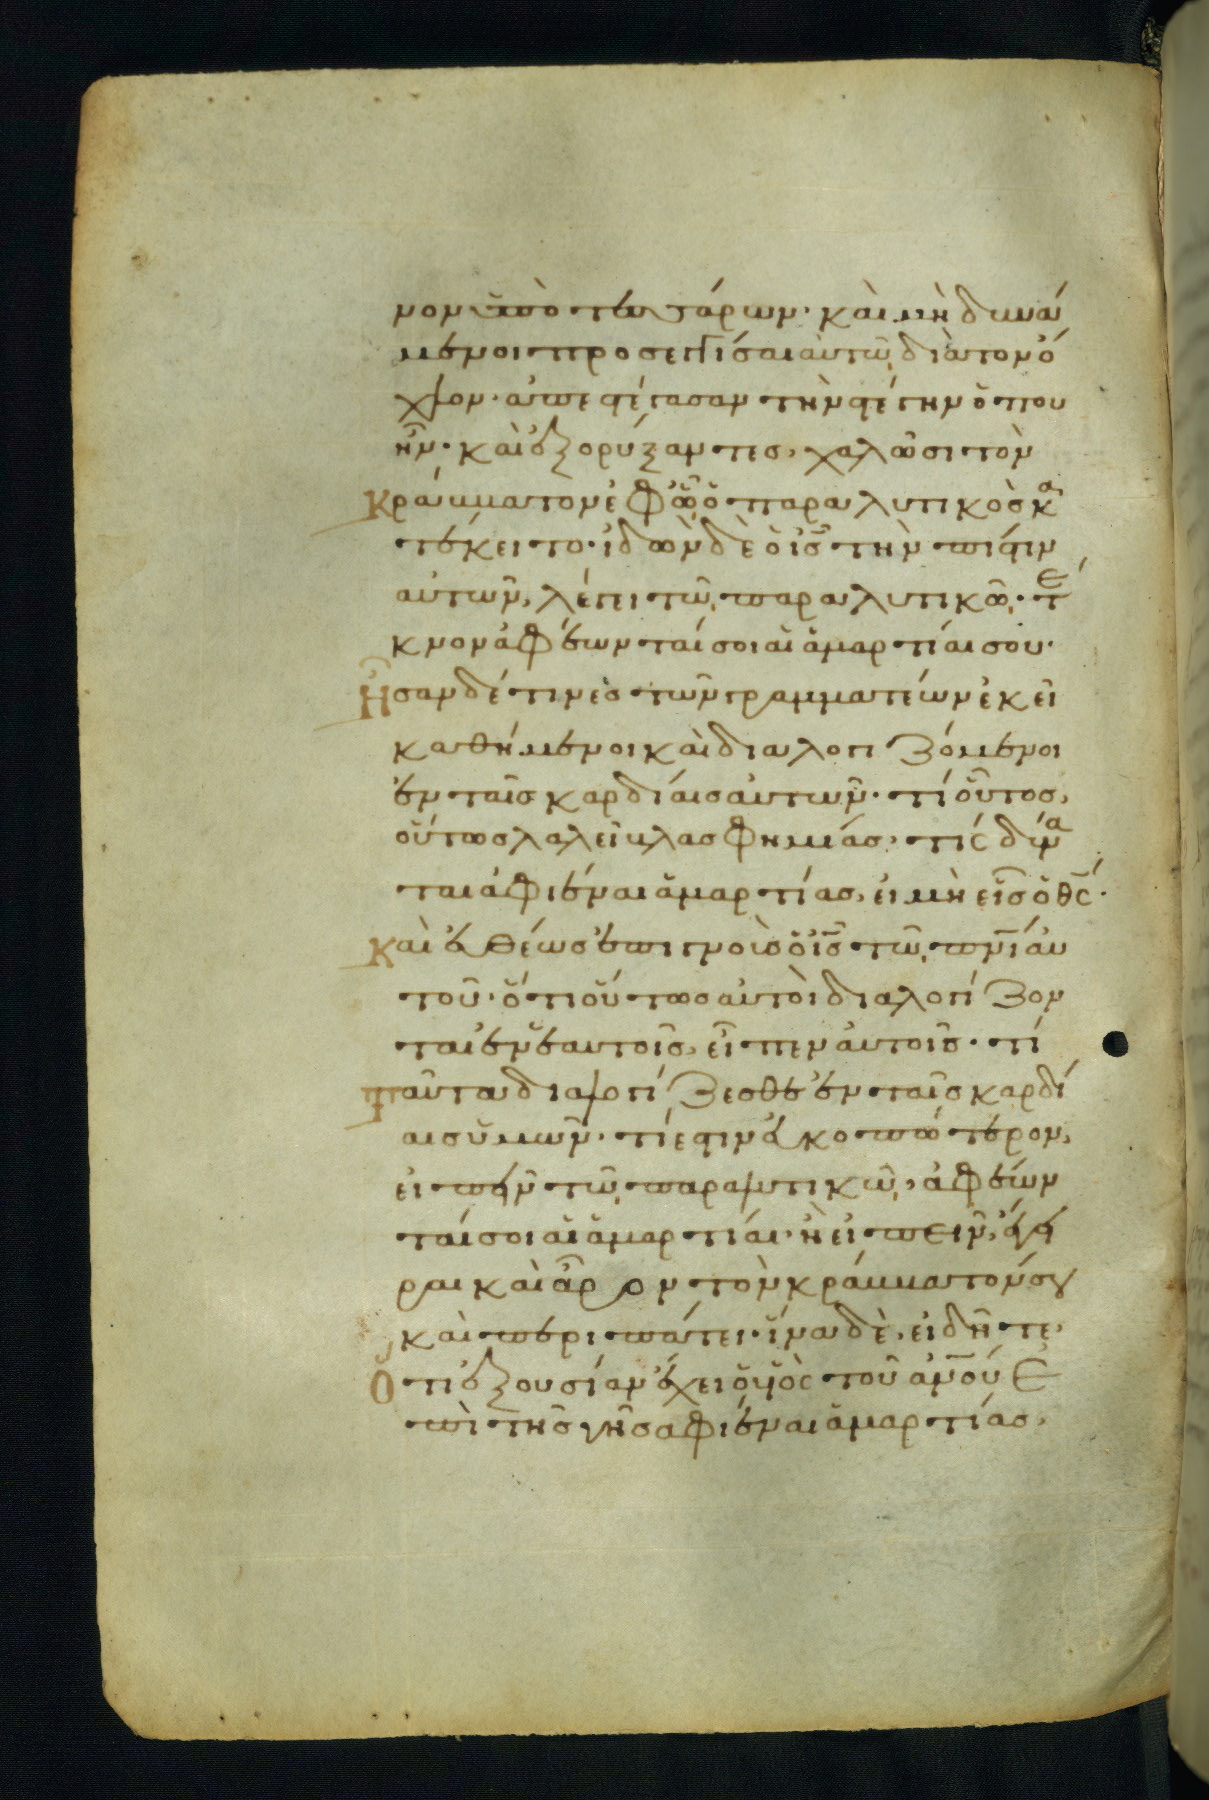 νον ὑπὸ τεσσάρων· καὶ μὴ δυνά
μενοι προσεγγίσαι αὐτῷ διὰ τὸν ὄ
χλον· ἀπεστέγασαν τὴν στέγην ὅπου
ἦν· καὶ ἐξορύξαντες, χαλῶσι τὸν
κράββατον ἐφ' ᾧ ὁ παραλυτικὸς κα
τέκειτο· ἰδὼν δὲ ὁ ις τὴν πίστιν
αὐτῶν, λέγει τῷ παραλυτικῷ· τέ
κνον ἀφέωνταί σοι αἱ ἁμαρτίαι σου·
Ἦσαν δέ τινες τῶν γραμματέων ἐκεῖ
καθήμενοι καὶ διαλογιζόμενοι
ἐν ταῖς καρδίαις αὐτῶν· τί οὗτος,
οὕτως λαλεῖ βλασφημίας, τίς δύνα
ται ἀφιέναι ἁμαρτίας, εἰ μὴ εἷς ὁ θς·
Καὶ εὐθέως ἐπιγνοὺς ὁ ις τῷ πνι αὐ
τοῦ· ὅτι οὕτως αὐτοὶ διαλογίζον
ται ἐν ἑαυτοῖς, εἶπεν αὐτοῖς· τί
ταῦτα διαλογίζεσθε ἐν ταῖς καρδί
αις ὑμῶν· τί ἐστιν εὐκοπώτερον,
εἰπεῖν τῷ παραλυτικῷ, ἀφέων
ταί σοι αἱ ἁμαρτίαι· ἢ εἰπεῖν, ἔγει
ραι καὶ ἆρον τὸν κράββατόν σου
καὶ περιπάτει· ἵνα δὲ, εἰδῆτε,
ὅτι ἐξουσίαν ἔχει ὁ υἱὸς τοῦ ανου ἐ
πὶ τῆς γῆς ἀφιέναι ἁμαρτίας,